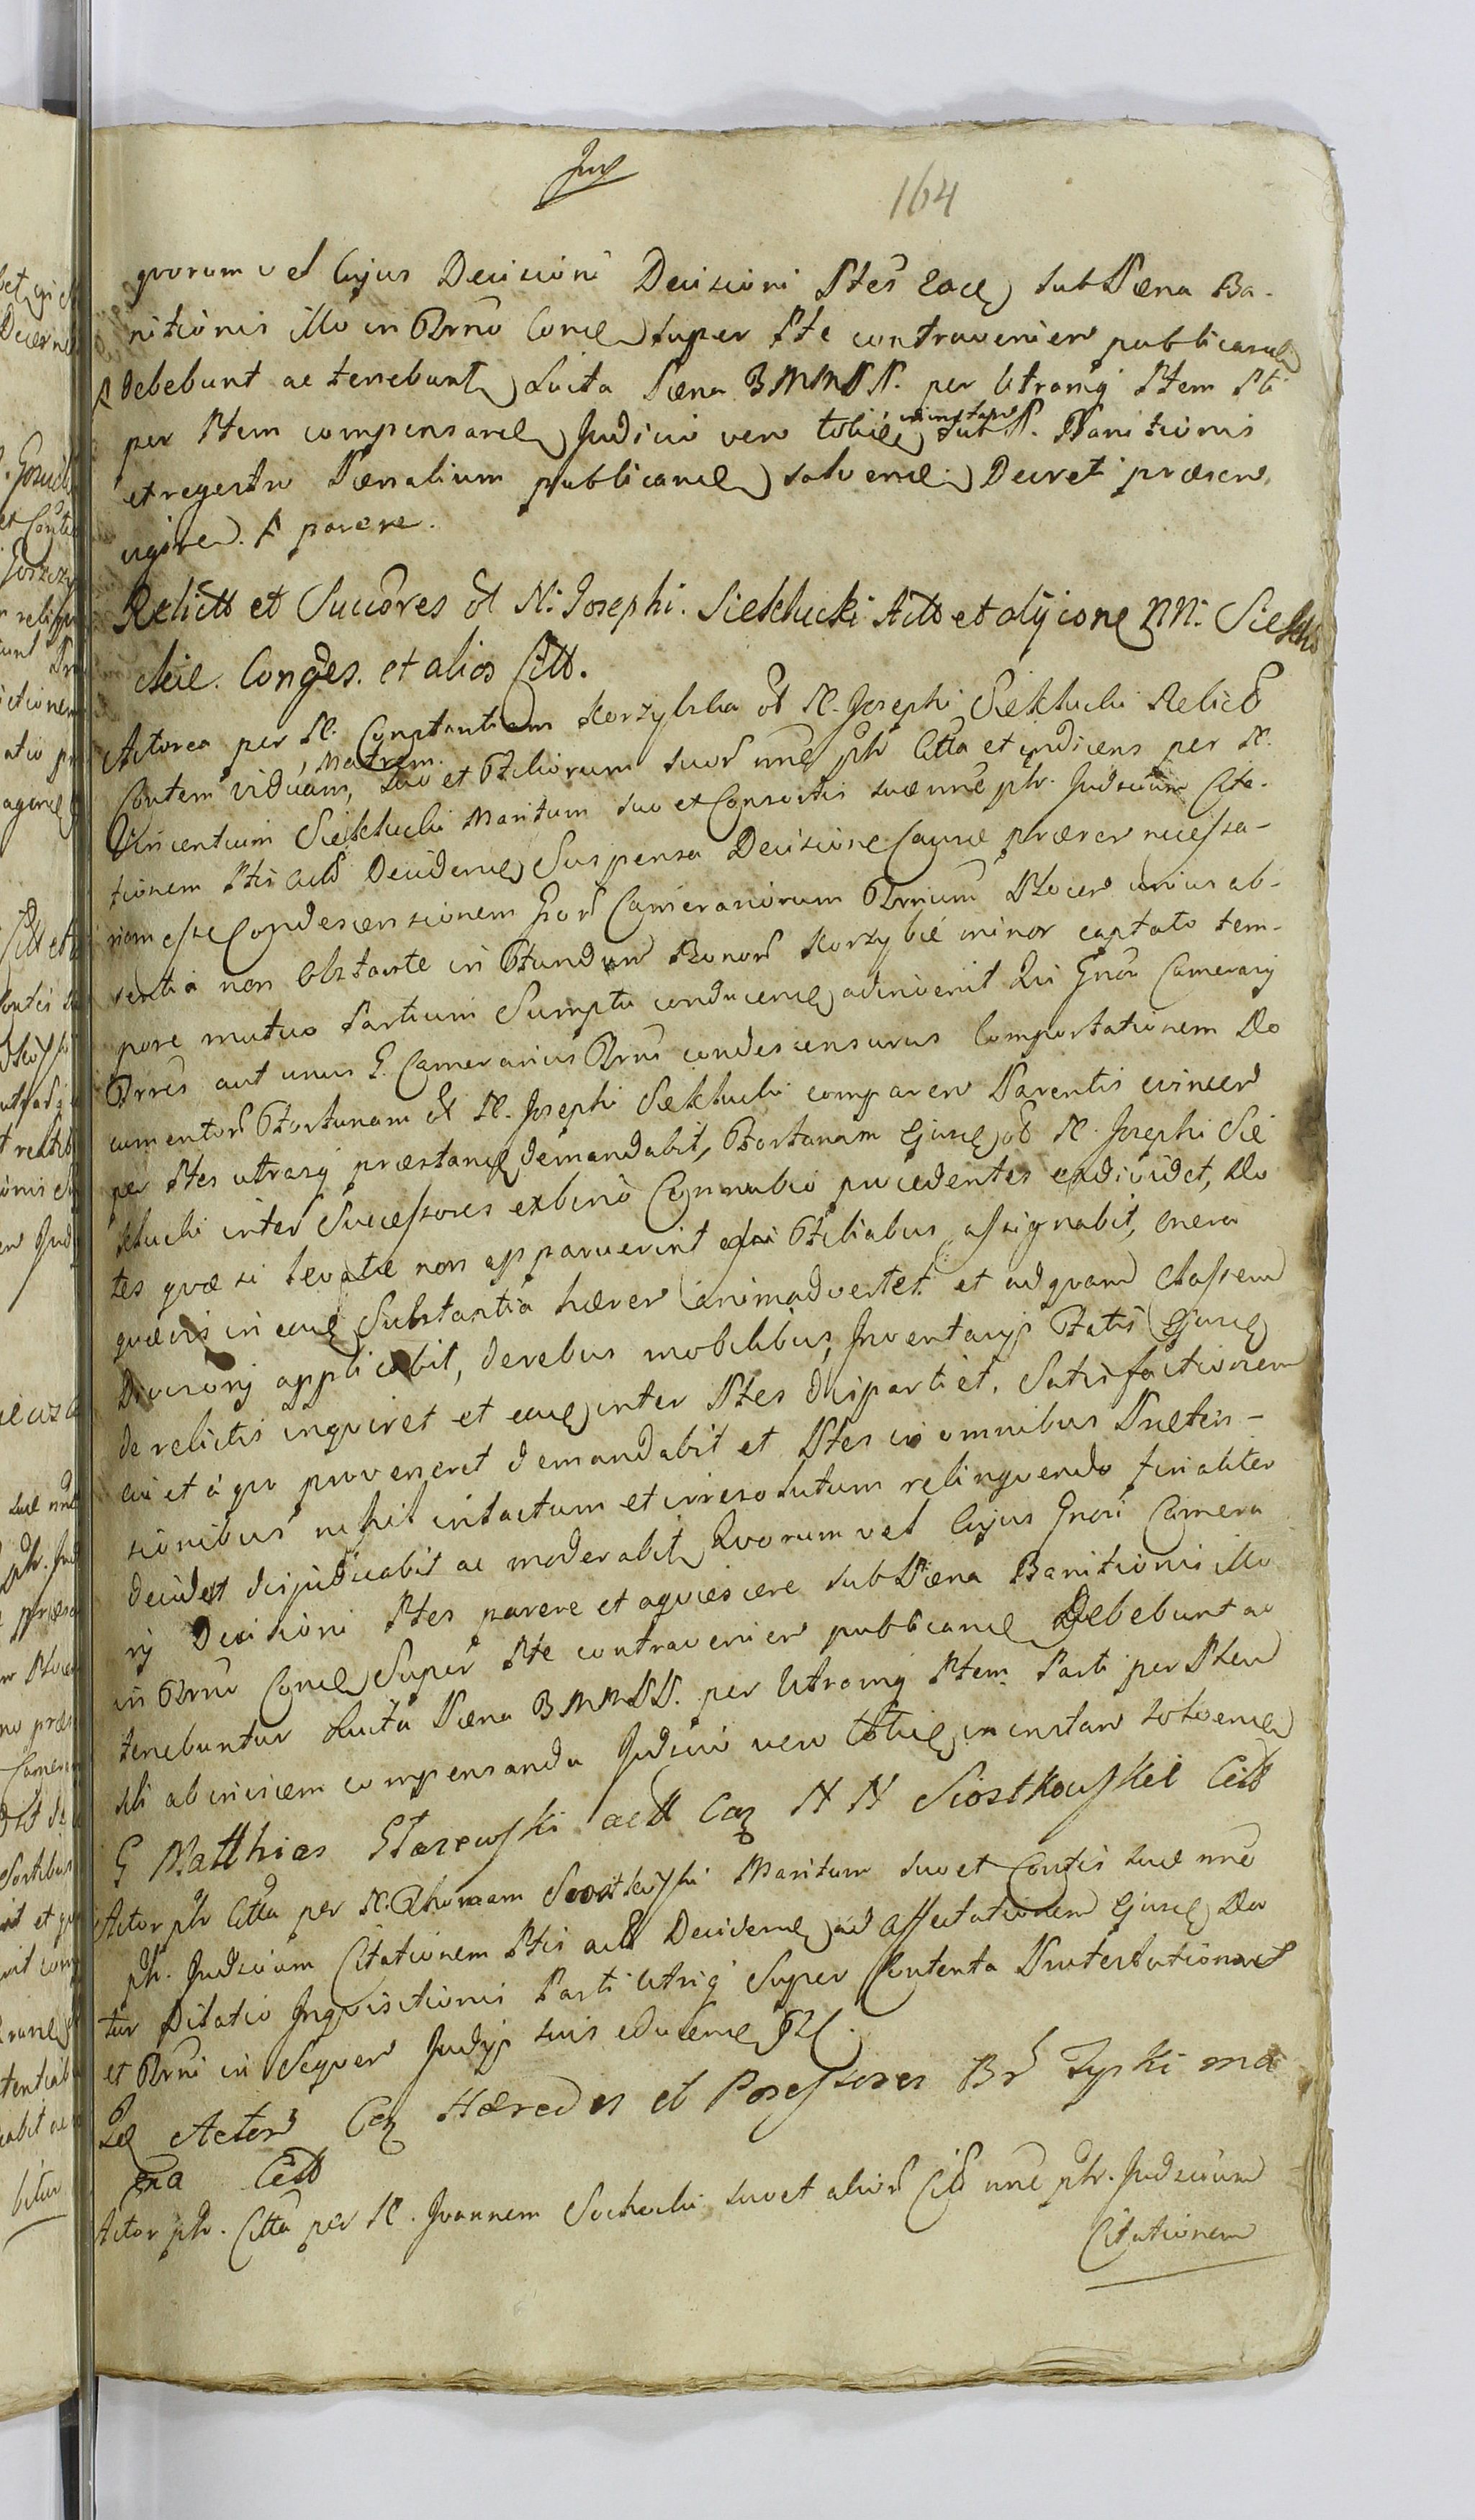 Jux
164
qvorum vel Cujus Decisioni Decisioni Ptes Eaed sub Pæna Ba-
nitionis illo in Trno Cond super Pte contravenien publicand
debebunt ac tenebunt Luita Pæna BMMPP. per Utramq Ptem Pti
per Ptem compensand Judicio vero totied in instan sub P. Banitionis
et regestro Pænalium publicand solvend Decret præsen
vigore. parere.
Relictt et Succõres ol N: Josephi. Siekłucki Actt et olij cone NN: Siekłu
ckie. Conges. et alios Citt.
Actorea per N. Constantiam Korzybska ol N. Josephi Siekłucki Relict
Contem viduam, Matrem. suo et Filiorum suor nne ptr Citta et indicens per N.
Vincentium Siekłucki Maritum suo et Consortis suæ nne ptr. Judicium Cita-
tionem Ptis actt Decidend Suspensa Decisione Causæ præsen necessa-
riam esse Condescensionem Gror Camerariorum Trrium Plocen unius ab-
sentia non obstante in Fundum Bonor Korzybie minor captato tem-
pore mutuo Partium Sumptu conducend adinvenit Qui Gnosi Camerarij
Trres aut unus G. Camerarius Trris condescensurus Comportationem Do
cumentor Fortunam ol N. Josephi Siekłucki comparen Parentis evincen
per Ptes utrasq præstand demandabit, Fortunam Ejusd ol N. Josephi Sie
kłucki inter Successores ex bino Connubio procedentes exdividet, Do
tes qvæ si levatæ non apparuerint Filiabus assignabit, onera
qvævis in ead Substantia hæren animadvertet et ad qvam Classem
Divisorij applicabit, de rebus mobilibus, Inventarijs Fatis Ejusd
derelictis inqviret et ead inter Ptes dispartiet, Satisfactionem
cui et à qvo proveneret demandabit et Ptes in omnibus Præten-
sionibus nihil intactum et irresolutum relinqvendo finaliter
decidet disjudicabit ac moderabit Qvorum vel Cujus Gnosi Camera
rij Decisioni Ptes parere et aqviescere sub Pæna Banitionis illo
in Trno Cond Super Pte contravenien publicand Debebunt ac
tenebuntur Luita Pæna BMMPP. per Utramq Ptem Parti per Ptem
sibi ab invicem compensanda Judicio vero totied in instan solvend
G Matthias Starewski actt Caz NN Siostkowskie Citt
Actor ptr Citta per N. Thomam Siostkowski Maritum suo et Contis suæ nne
ptr. Judicium Citationem Ptis actt Decidend ad affectationem Ejusd Da
tur Dilatio Inqvisitionis Parti Utriq Super Contenta Protestationis
et Trni in Seqven Judijs suis educend
Id Actor Caz Hæredes et Possessores Br Zyski ma
gna Citt
Actor ptr. Citta per N. Joannem Sochacki suo et alior Cit nne ptr. Judicium
Citationem